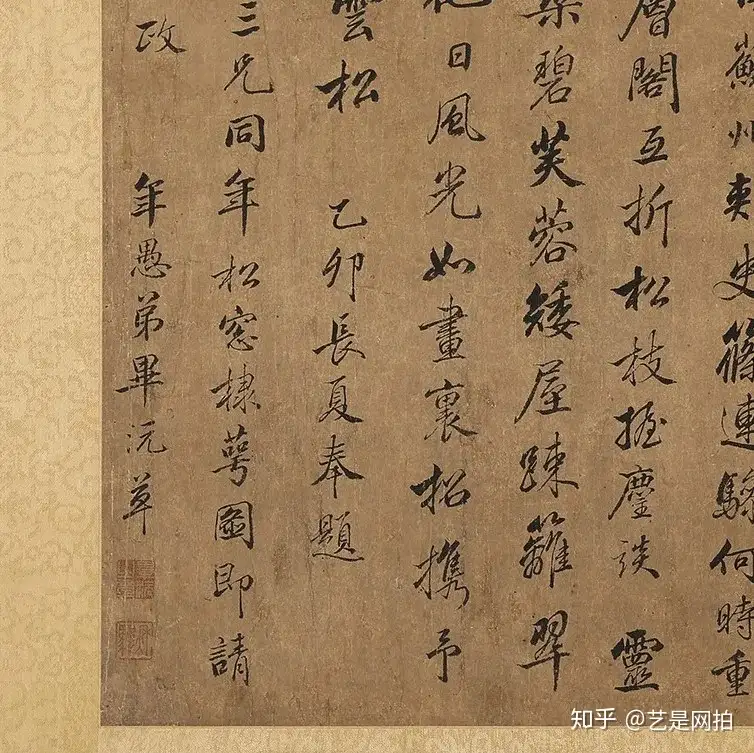 蘇州夾岸篠連騎何時重
層閣互折松枝握麈談 靈
栗碧芙蓉矮屋踈籬翠
日風光如畫裏松攜予
雲松 乙卯長夏奉題
三兄同年松窓棣萼圖即請
政 年愚弟畢沅草
知乎 @艺是网拍